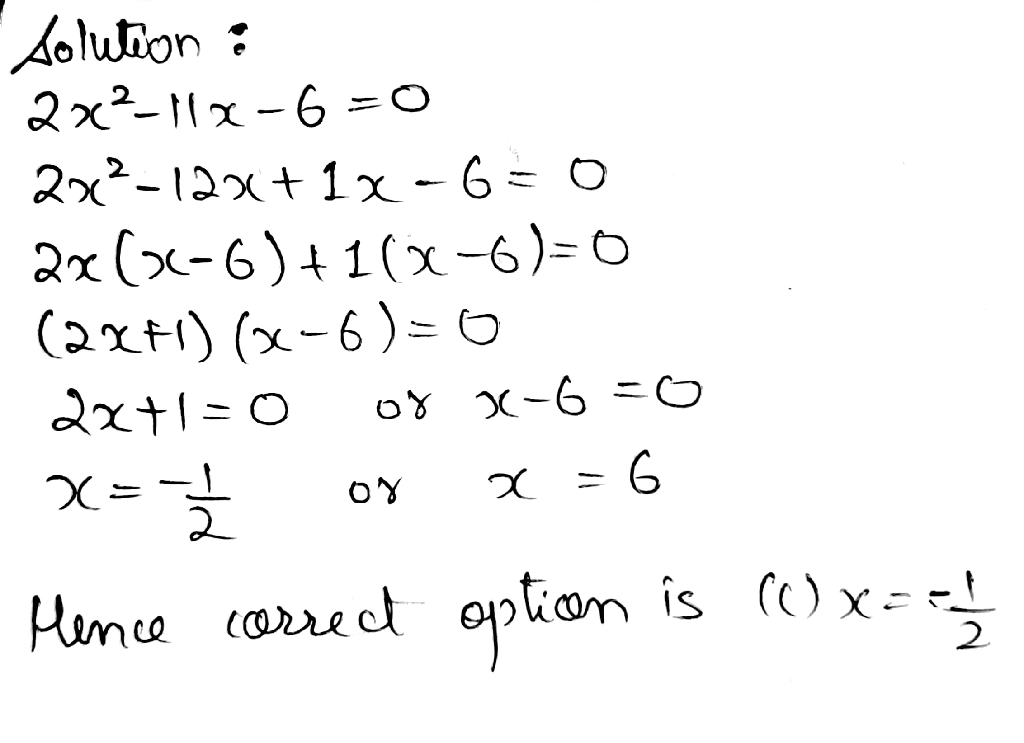 Solution :
2x²-11x-6=0
2x²-12x+1x-6=0
2x(x-6)+1(x-6)=0
(2x+1)(x-6)=0
2x+1=0 or x-6=0
x=-1/2 or x=6
Hence correct option is (C) x=-1/2